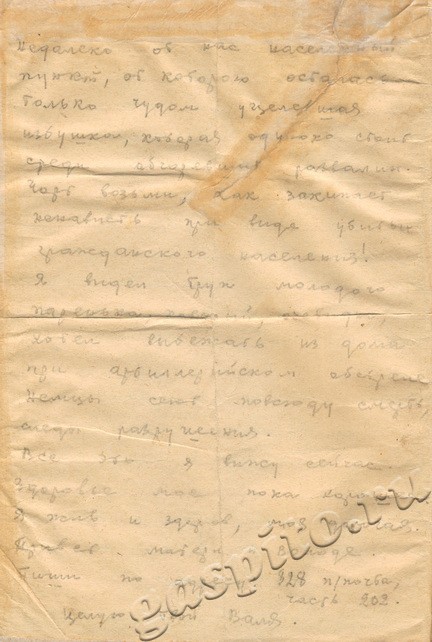 Недалеко от нас населенный
пункт, от которого осталась
только чудом уцелевшая
избушка, которая одиноко стоит
среди обгоревших развалин.
Чорт возьми, как закипает
ненависть при виде убитых
гражданского населения!
Я видел труп молодого
паренька, который, очевидно,
хотел выбежать из дома
при артиллерийском обстреле.
Немцы сеют повсюду смерть,
следы разрушения.
Все это я вижу сейчас.
Здоровье мое пока хорошо.
Я жив и здоров, моя
Привет матери,
Пиши по 828 п/почта,
часть 202.
Целую твой Валя.
gaspiko.ru